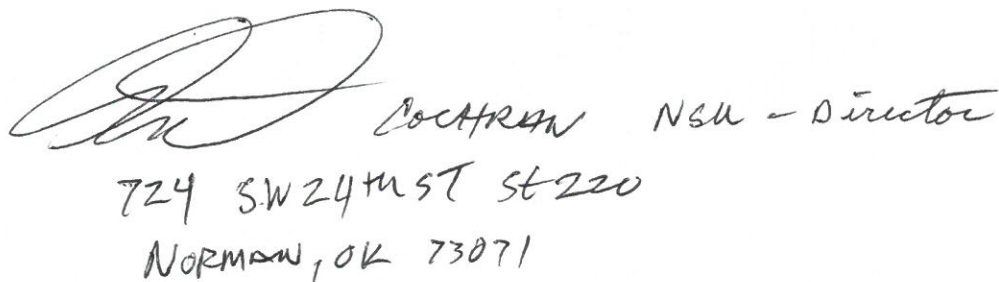 COCHRAN NSU - Director
724 SW 24TH ST St 220
NORMAN, OK 73071